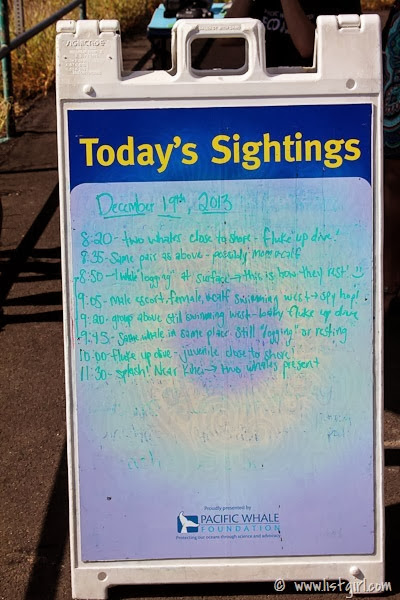 SIGNICADE
Today's Sightings
December 19th, 2013
8:20 - two whales close to shore - fluke up dive!
8:35 - Same pair as above - possibly mom & calf
8:50 - 1 whale "logging" at surface → this is how they rest! :)
9:05 - Male escort, female, & calf swimming west → spy hop!
9:20 - group above still swimming west - fluke up dive
9:45 - Same whale in same place. Still "logging" or resting
10:00 - Fluke up dive - juvenile close to shore!
11:30 - splash! Near Kihei → two whales present
Proudly presented by
PACIFIC WHALE
FOUNDATION
Protecting our oceans through science and advocacy
© www.listgirl.com